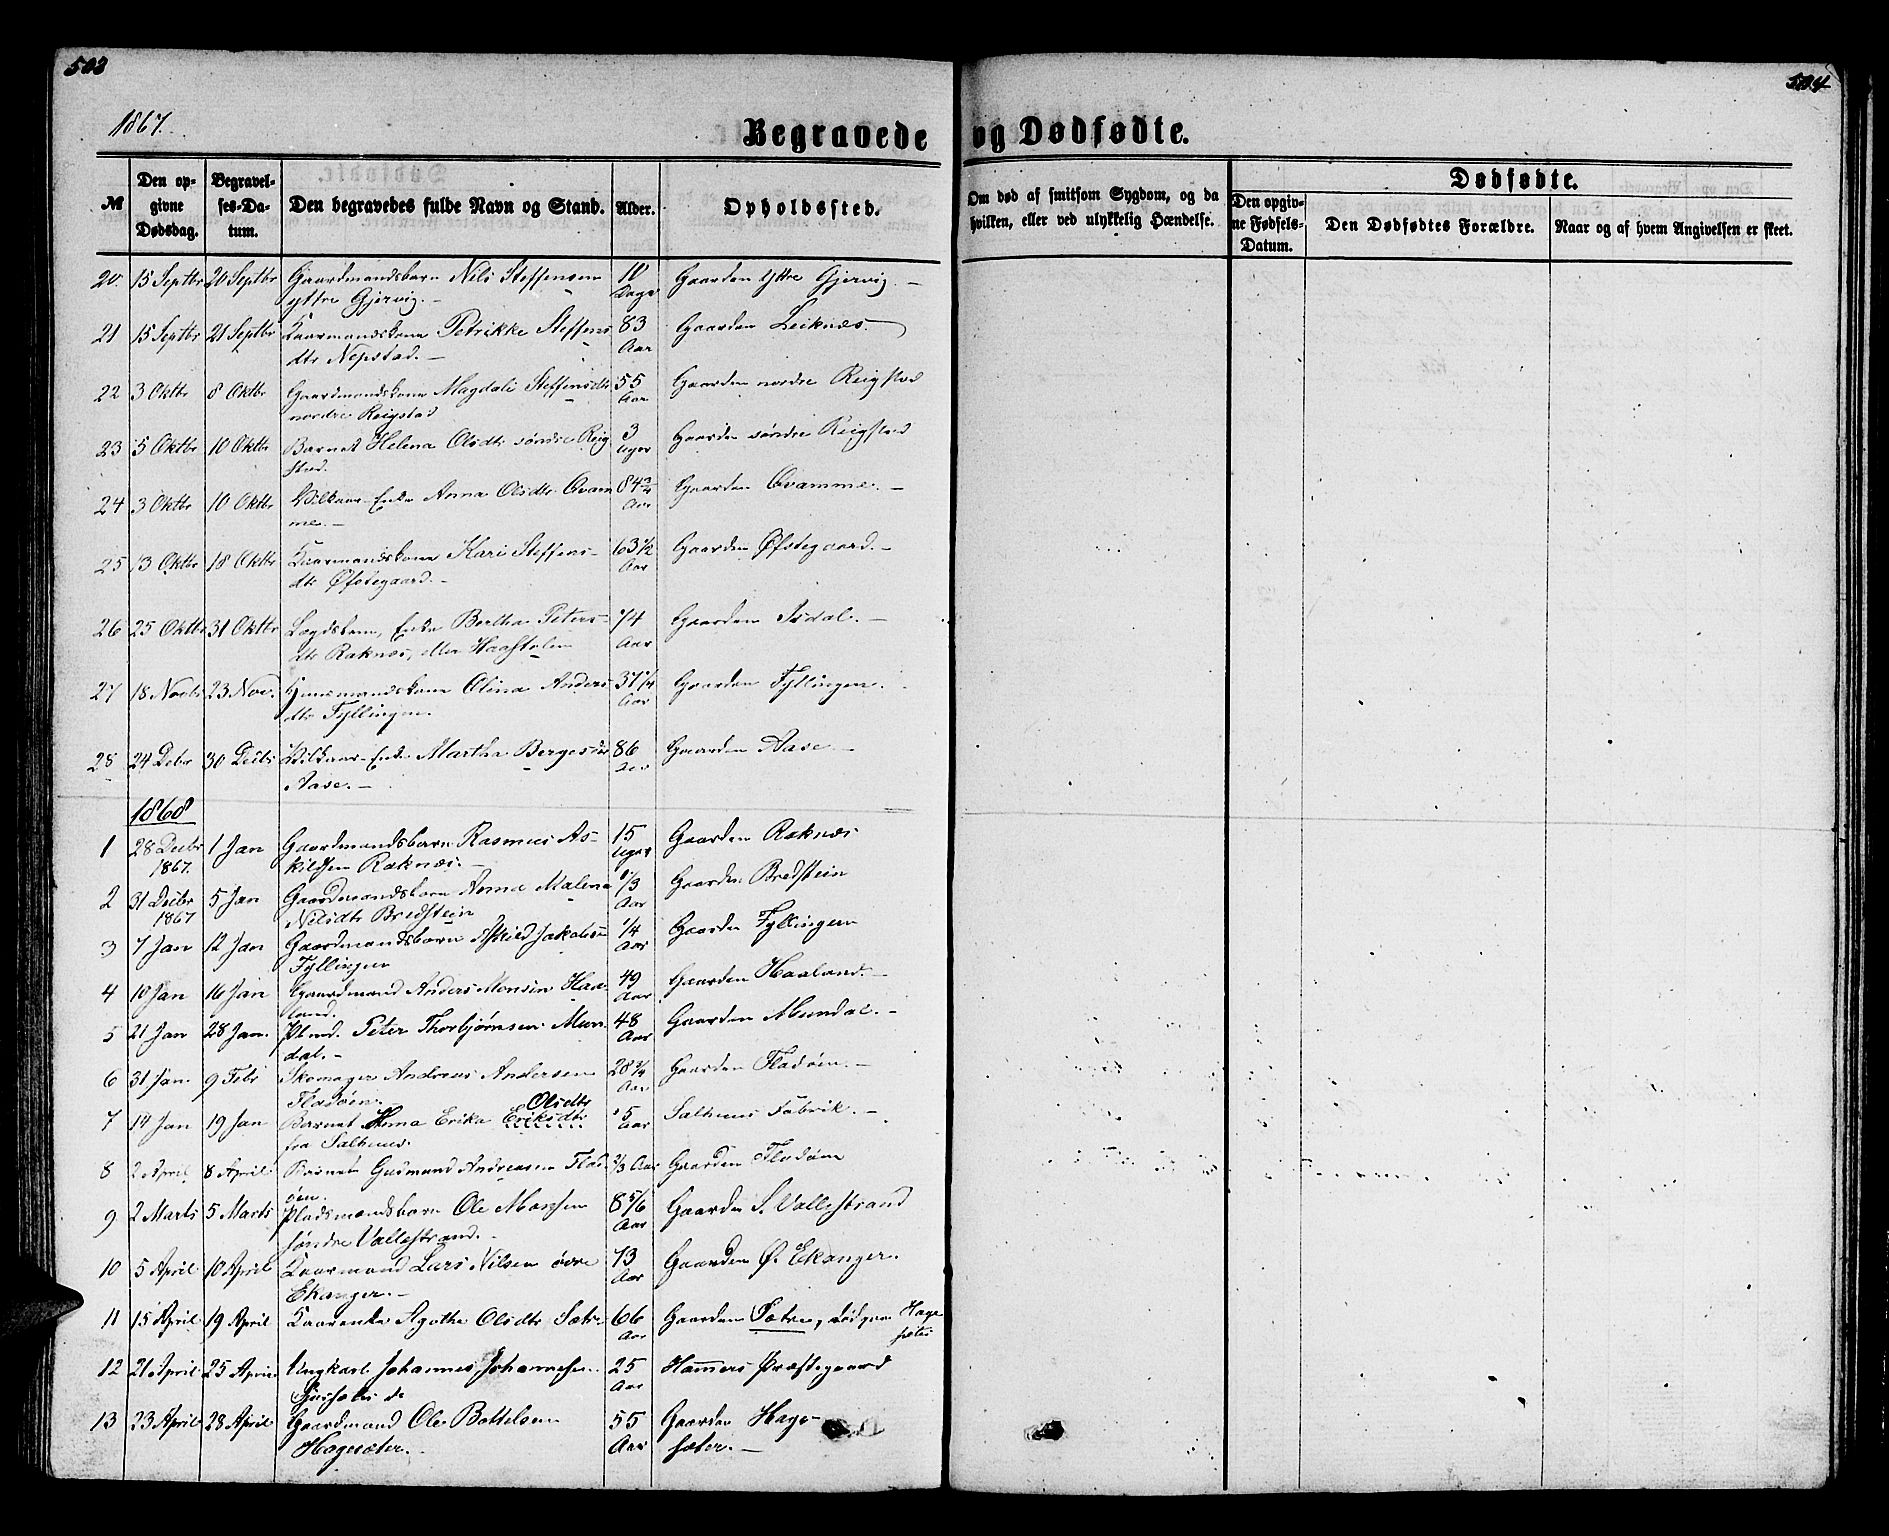 503
504
1867.
Begravede og Dødfødte.
№ Den opgivne Dødsdag. Begravelses-Datum. Den begravedes fulde Navn og Stand. Alder. Opholdssted. Om død af smitsom Sygdom, og da hvilken, eller ved ulykkelig Hændelse. Dødfødte.
Den opgivne Fødsels-Datum. Den Dødfødtes Forældre. Naar og af hvem Angivelsen er skeet.
20. 15 Septbr 20 Septbr Gaardmandsbarn Nils Steffensen Gaarden Yttre Gjervig. –
yttre Gjervig. – Dage
21 15 Septbr 21 Septbr Kaarmandskone Petrikke Steffens 83 Gaarden Leiknæs.
dtr Nepstad. – Aar
22 3 Oktbr 8 Oktbr Gaardmandskone Magdali Steffensdtr 55 Gaarden nordre Reigstad
nordre Reigstad Aar
23 5 Oktbr 10 Oktbr Barnet Helena Olsdtr søndre Reig 3 Gaarden søndre Reigstad
stad. Uger
24 3 Oktbr 10 Oktbr Vilkaar-Enke Anna Olsdtr Qvam 84 3/4 Gaarden Qvamme. –
me. – Aar
25 13 Oktbr 18 Oktbr Kaarmandskone Kari Steffens- 63 1/2 Gaarden Øfstegaard. –
dtr Øfstegaard. – Aar
26 25 Oktbr 31 Oktbr Lægdslem, Enke Bertha Peters- 74 Gaarden Isdal. –
dtr Raknæs, eller Haastolen Aar
27 18 Novbr 23 Nov. Huusmandskone Olina Anders 37 1/4 Gaarden Fyllingen.
dtr Fyllingen. Aar
28 24 Debr 30 Decbr Vilkaar-Enke Martha Bergesdtr 86 Gaarden Aase. –
Aase. – Aar
1868
1 28 Decbr 1 Jan Gaardmandsbarn Rasmus As- 15 Gaarden Raknæs
1867. kildsen Raknæs. – Uger
2 31 Decbr 5 Jan Gaardmandsbarn Anna Malena 1/3 Gaarden Bredstein
1867 Nilsdtr Bredstein Aar
3 7 Jan 12 Jan Gaardmandsbarn Askild Jakobsen 1/4 Gaarden Fyllingen
Fyllingen Aar
4 10 Jan 16 Jan Gaardmand Anders Monsen Haa- 49 Gaarden Haaland. –
land. Aar
5 21 Jan 28 Jan. Plmd. Peter Thorbjørnsen Mun 48 Gaarden Mundal. –
dal. – Aar
6 31 Jan. 9 Febr Skomager Andreas Andersen 28 3/4 Gaarden Fladøen. –
Fladøen. – Aar
Olsdtr
7 14 Jan 19 Jan Barnet Anna Erika Eriksdtr 5 Salhuus Fabrik. –
fra Salhuus. Aar
8 2 April 8 April Barnet Gudmund Andreasen Flad- 2/3 Aar Gaarden Fladøen
øen.
9 2 Marts 5 Marts Pladsmandsbarn Ole Monsen 8 5/6 Gaarden S. Vallestrand
søndre Vallestrand. – Aar
10 5 April 10 April Kaarmand Lars Nilsen øvre 73 Gaarden Ø. Ekanger.
Ekanger. – Aar
11 15 April 19 April Kaarenke Agothe Olsdtr Sætre 66 Gaarden Sætre, død paa Hage
Aar sæter
12 21 April 25 April Ungkarl Johannes Johannesen 25 Hammers Præstegaard
Aar
13 23 April 28 April Gaardmand Ole Bottelsen 55 Gaarden Hage-
Hagesæter. Aar sæter. –